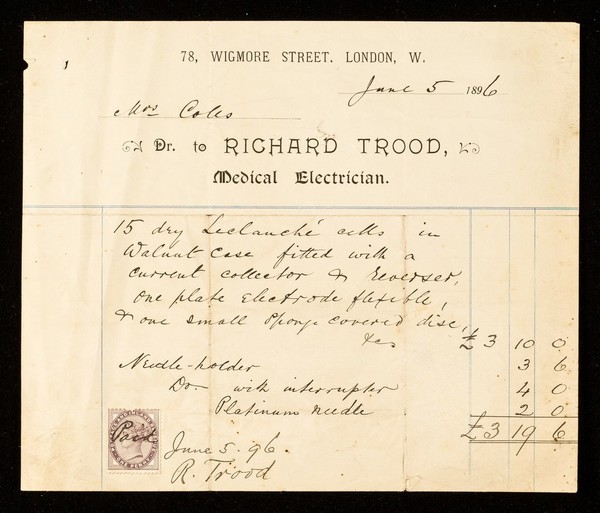 78, WIGMORE STREET. LONDON, W.
June 5 1896
Mrs Coles
Dr. to RICHARD TROOD,
Medical Electrician.
15 dry Leclanché cells in
Walnut case fitted with a
current collector & Reverser,
one plate Electrode flexible,
& one small sponge covered disc,
&c £3 10 0
Needle-holder 3 6
Do— with interrupter 4 0
Platinum needle 2 0
£3 19 6
Paid
ONE PENNY
June 5. 96.
R. Trood